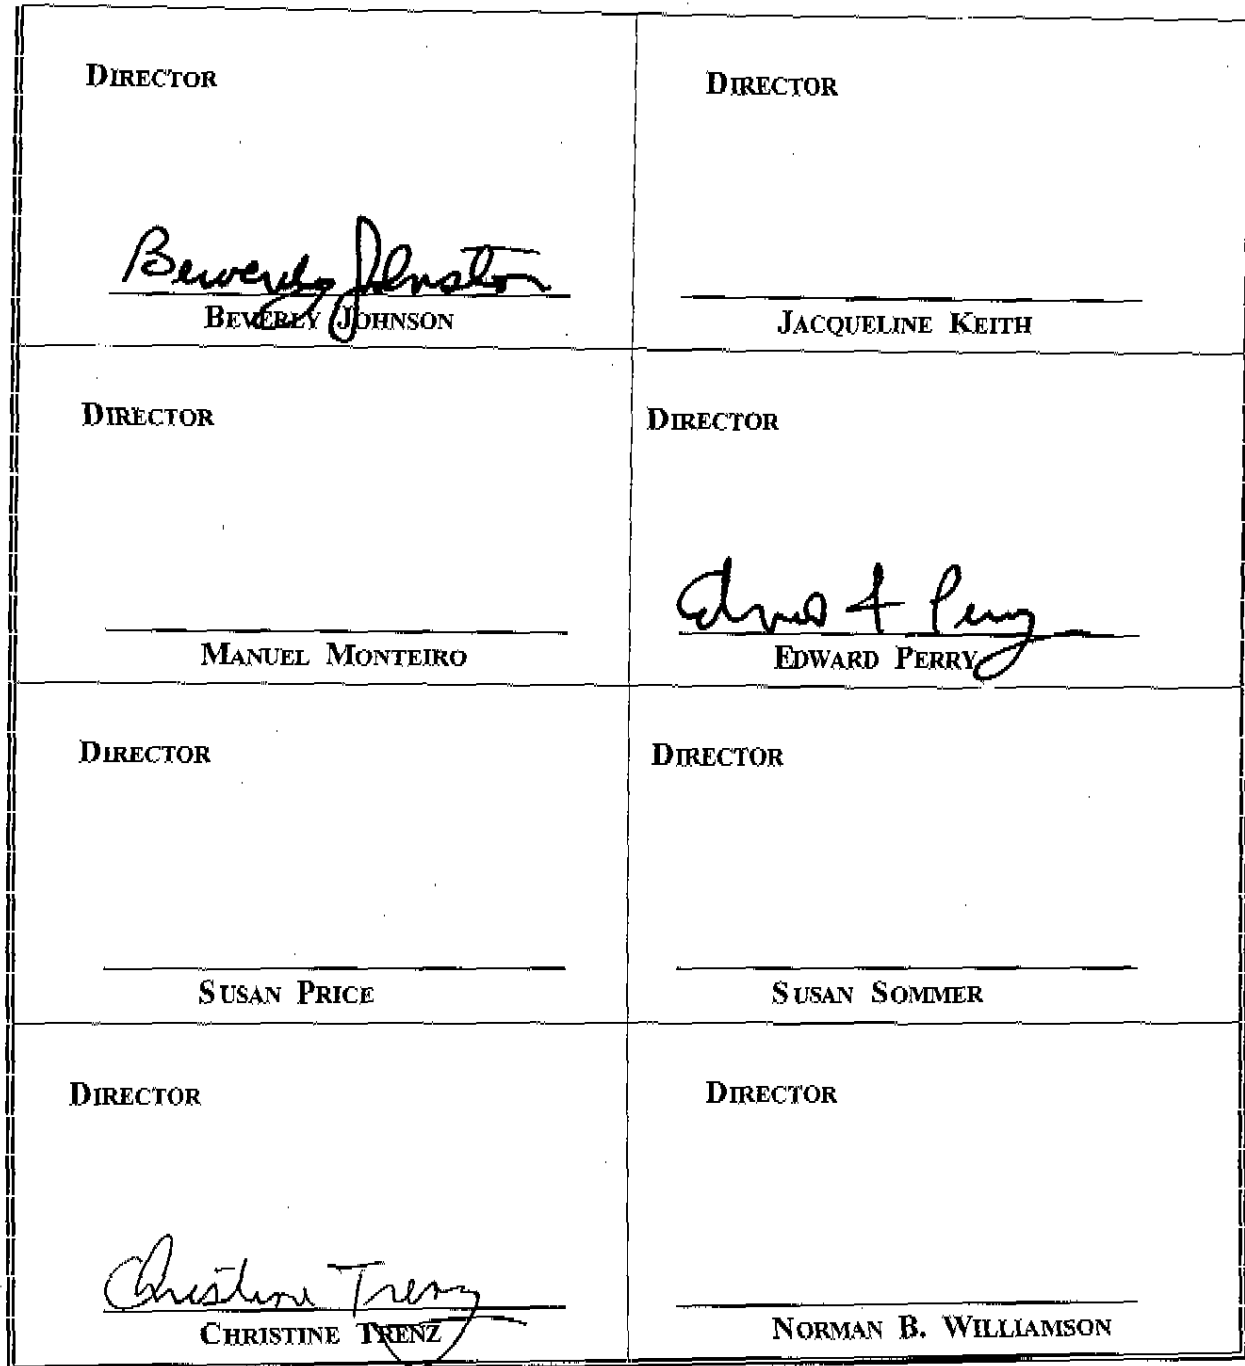 DIRECTOR
Beverly Johnston
BEVERLY JOHNSON
DIRECTOR
JACQUELINE KEITH
DIRECTOR
MANUEL MONTEIRO
DIRECTOR
Edward F Perry
EDWARD PERRY
DIRECTOR
SUSAN PRICE
DIRECTOR
SUSAN SOMMER
DIRECTOR
Christine Trenz
CHRISTINE TRENZ
DIRECTOR
NORMAN B. WILLIAMSON